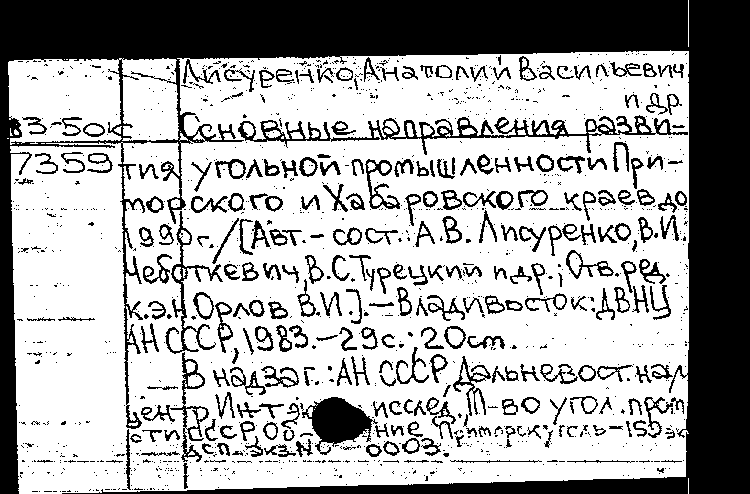 Лисуренко, Анатолий Васильевич
и др.
83-50к Основные направления разви-
7359 тия угольной промышленности При-
морского и Хабаровского краев до
1990 г. / [Авт.-сост.: А.В. Лисуренко, В.И.
Чеботкевич, В.С. Турецкий и др.; Отв. ред.
к.э.н. Орлов В.И.]. – Владивосток: ДВНЦ
АН СССР, 1983. – 29 с.; 20 см.
В надзаг.: АН СССР, Дальневост. науч
центр, Ин-т эк исслед, М-во угол. пром
сти СССР, Об- ние Приморскуголь – 150 эк
ДСП. Экз. № 0003.